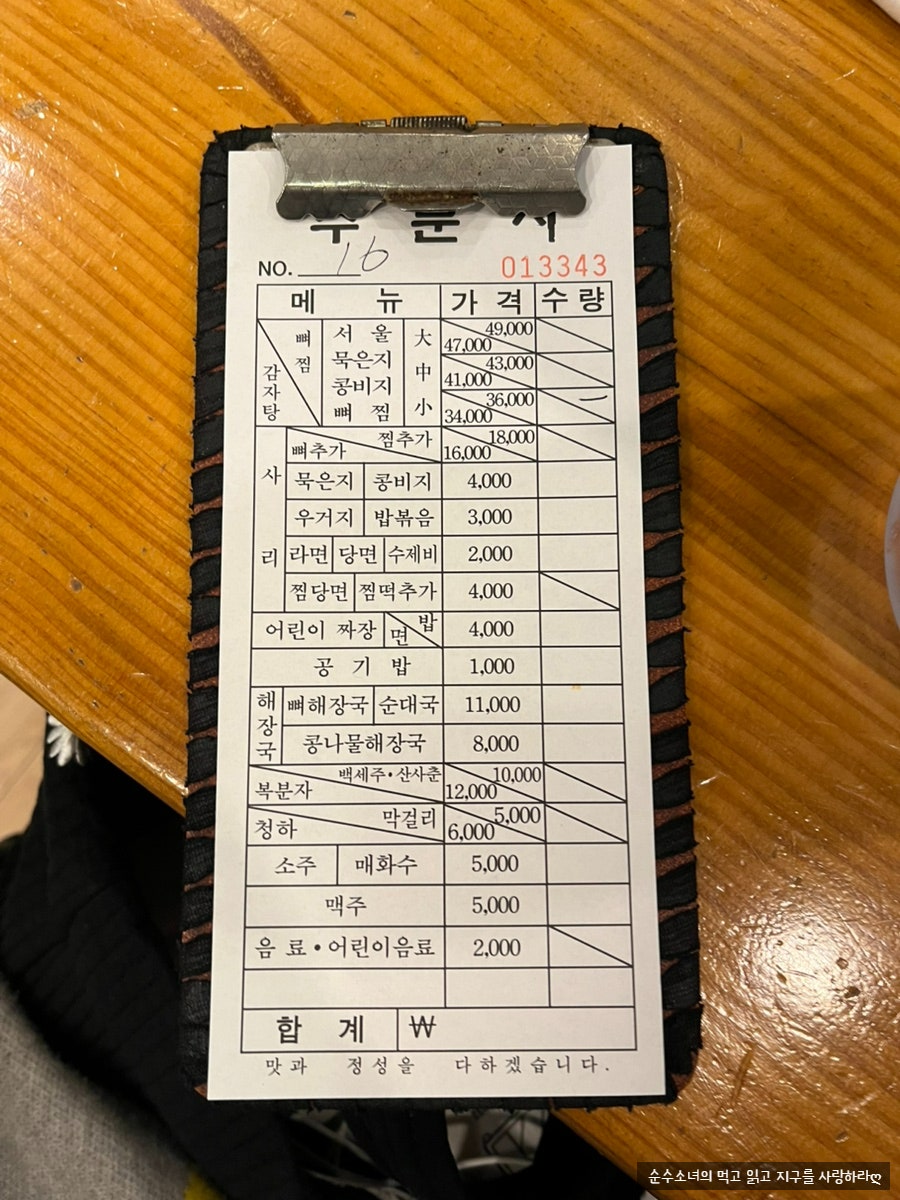 주 문 서
NO. 16 013343
메 뉴 가 격 수 량
감자탕 뼈찜 서 울 묵은지 콩비지 뼈 찜
大 49,000 47,000
中 43,000 41,000
小 36,000 34,000 一
사 리
뼈추가 찜추가 18,000 16,000
묵은지 콩비지 4,000
우거지 밥볶음 3,000
라면 당면 수제비 2,000
찜당면 찜떡추가 4,000
어린이 짜장 면 밥 4,000
공 기 밥 1,000
해장국 뼈해장국 순대국 11,000
콩나물해장국 8,000
복분자 백세주·산사춘 10,000 12,000
청하 막걸리 5,000 6,000
소주 매화수 5,000
맥주 5,000
음 료·어린이음료 2,000
합 계 ₩
맛과 정성을 다하겠습니다.
순수소녀의 먹고 읽고 지구를 사랑하라ღ